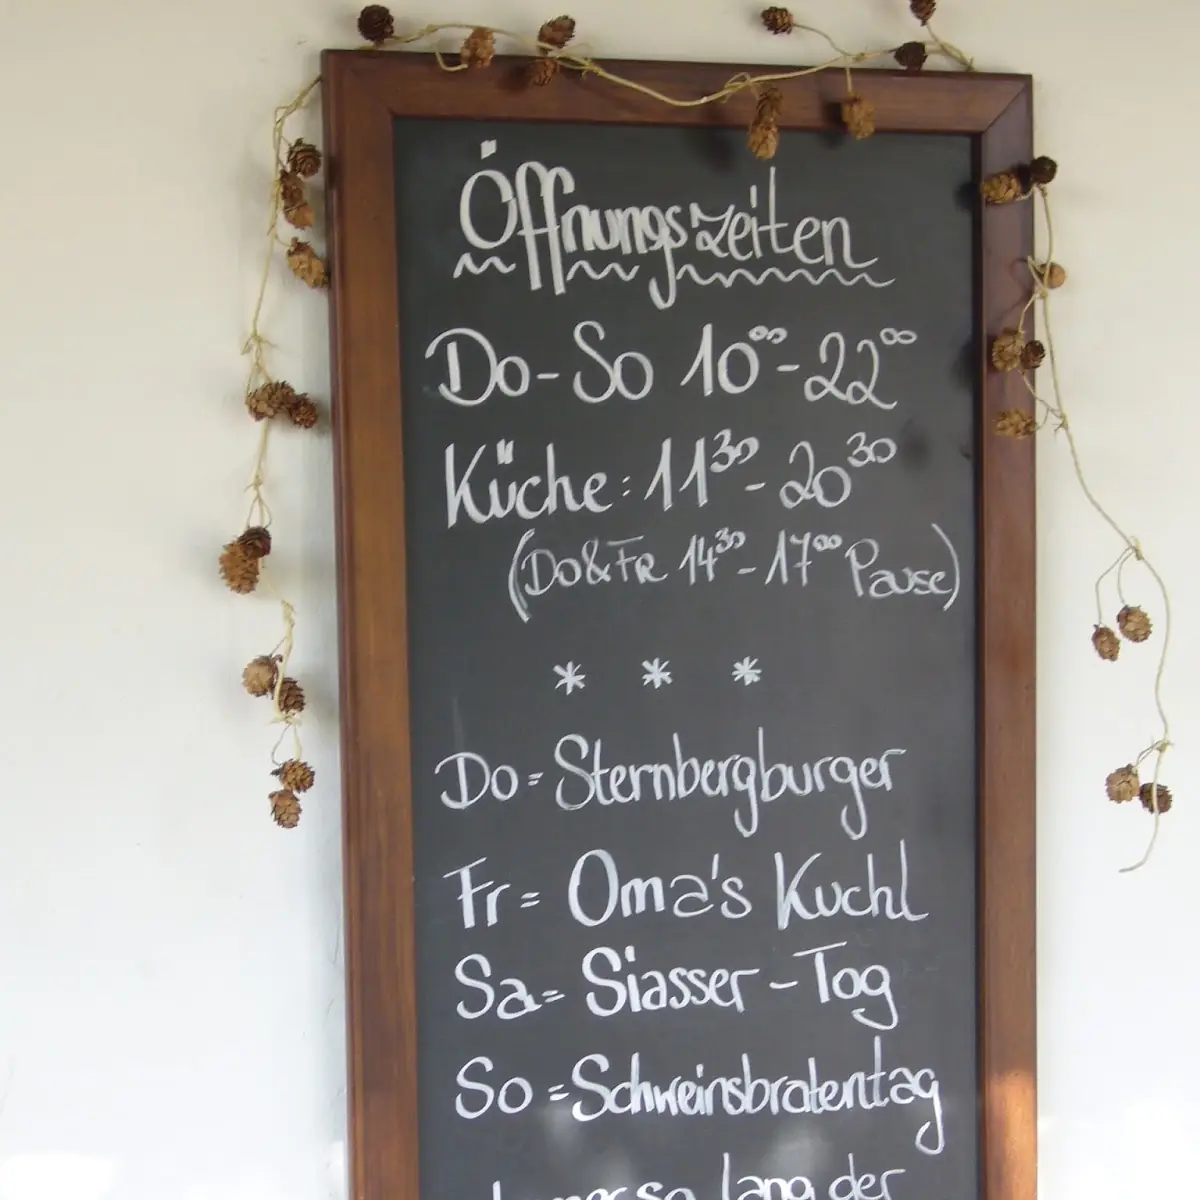 Öffnungszeiten
Do-So 10⁰⁰-22⁰⁰
Küche: 11³⁰-20³⁰
(Do&Fr 14³⁰-17⁰⁰ Pause)
* * *
Do= Sternbergburger
Fr= Oma's Kuchl
Sa= Siasser-Tog
So =Schweinsbratentag
so lang der